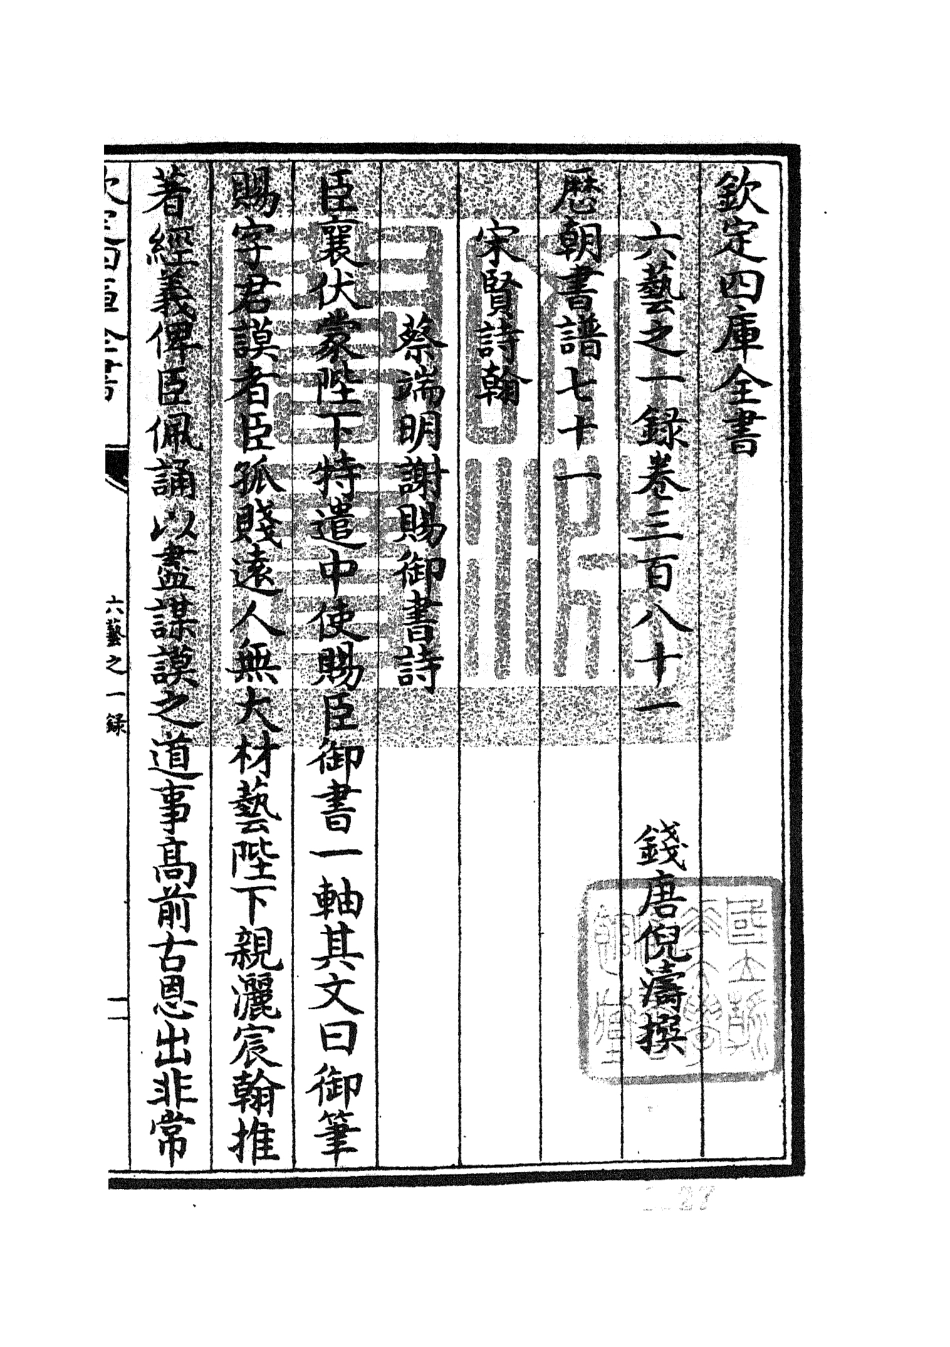 欽定四庫全書
六藝之一録卷三百八十一
錢唐倪濤撰
歷朝書譜七十一
宋賢詩翰
蔡端明謝賜御書詩
臣襄伏蒙陛下特遣中使賜臣御書一軸其文曰御筆
賜字君謨者臣孤賤遠人無大材藝陛下親灑宸翰推
著經義俾臣佩誦以盡謀謨之道事髙前古恩出非常
欽定四庫全書
六藝之一録